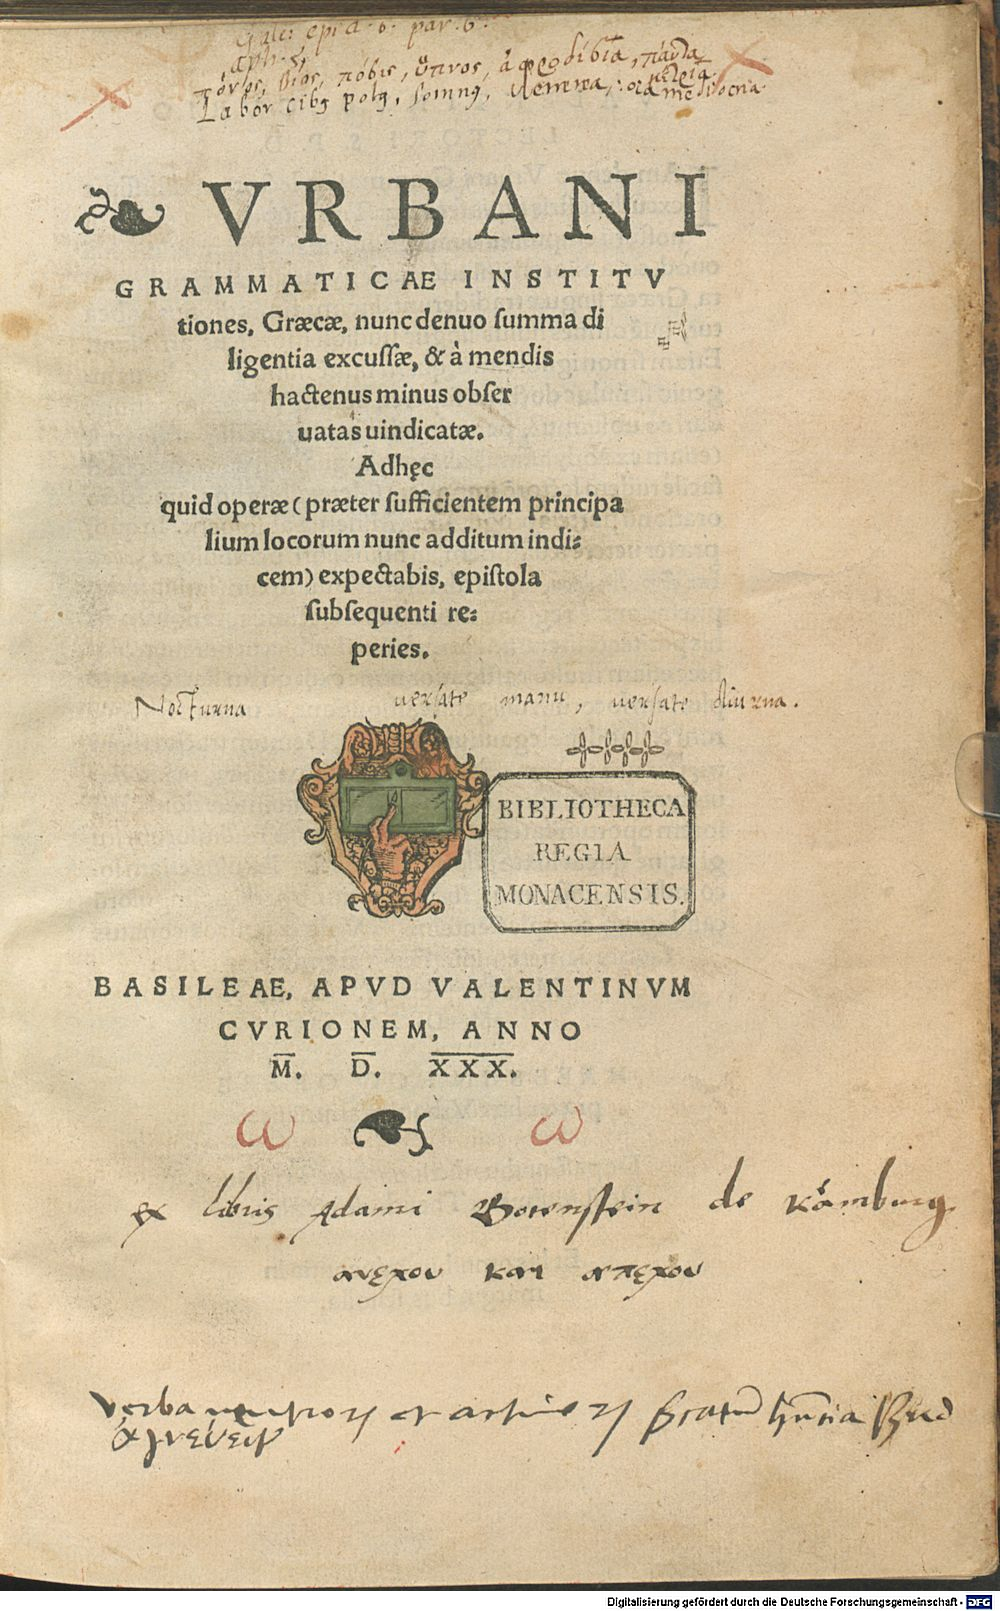 πόνος, σῖτος, πότος, ὕπνος, ἀφροδίσια, πάντα μέτρια.
Labor cibꝯ potꝯ, somnꝯ, Venerea, : oīa mediocria.
VRBANI
GRAMMATICAE INSTITV
tiones, Græcæ, nunc denuo ſumma di
ligentia excuſſæ, & à mendis
hactenus minus obſer
uatas uindicatæ.
Adhęc
quid operæ (præter ſufficientem principa
lium locorum nunc additum indi⸗
cem) expectabis, epiſtola
ſubſequenti re⸗
peries.
Nocturna versate manu, versate diurna.
BIBLIOTHECA
REGIA
MONACENSIS.
BASILEAE, APVD VALENTINVM
CVRIONEM, ANNO
M. D. XXX.
ω ω
ex libris Adami Bodenstein de
ανεχου και απεχου
Verba
Digitalisierung gefördert durch die Deutsche Forschungsgemeinschaft - DFG